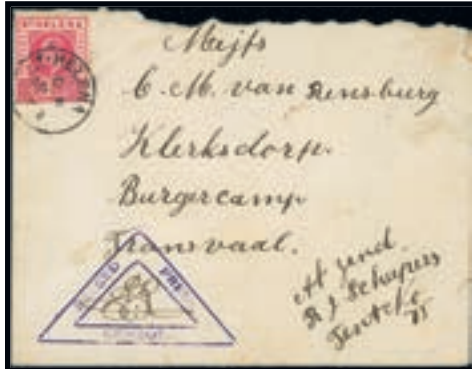 ST HELENA
Mejfs
C. M. van Rensburg
Klerksdorp.
Burgercamp
Transvaal.
PASSED
Afzend.
Schapers
Tent